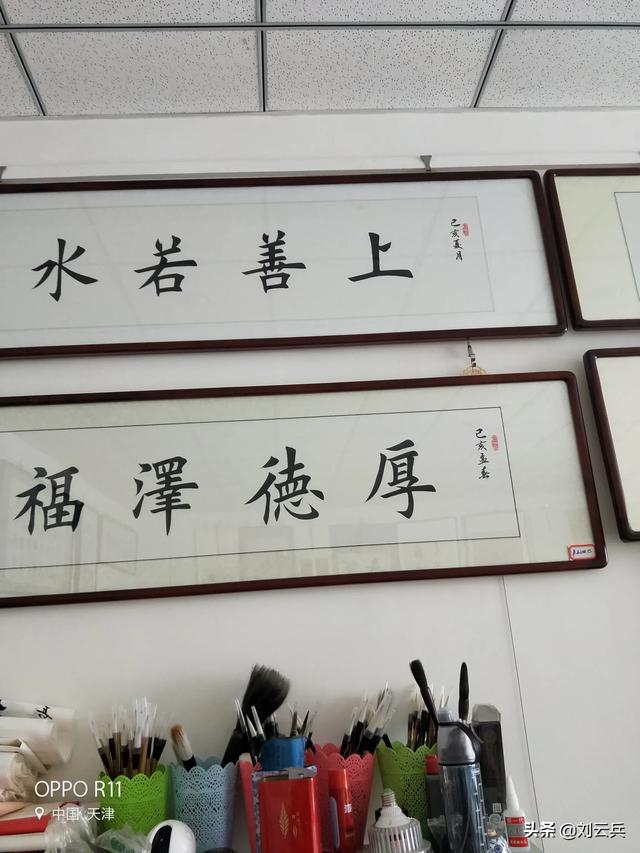 己亥夏月
上善若水
己亥春
厚德澤福
OPPO R11
中国, 天津
头条 @刘云兵